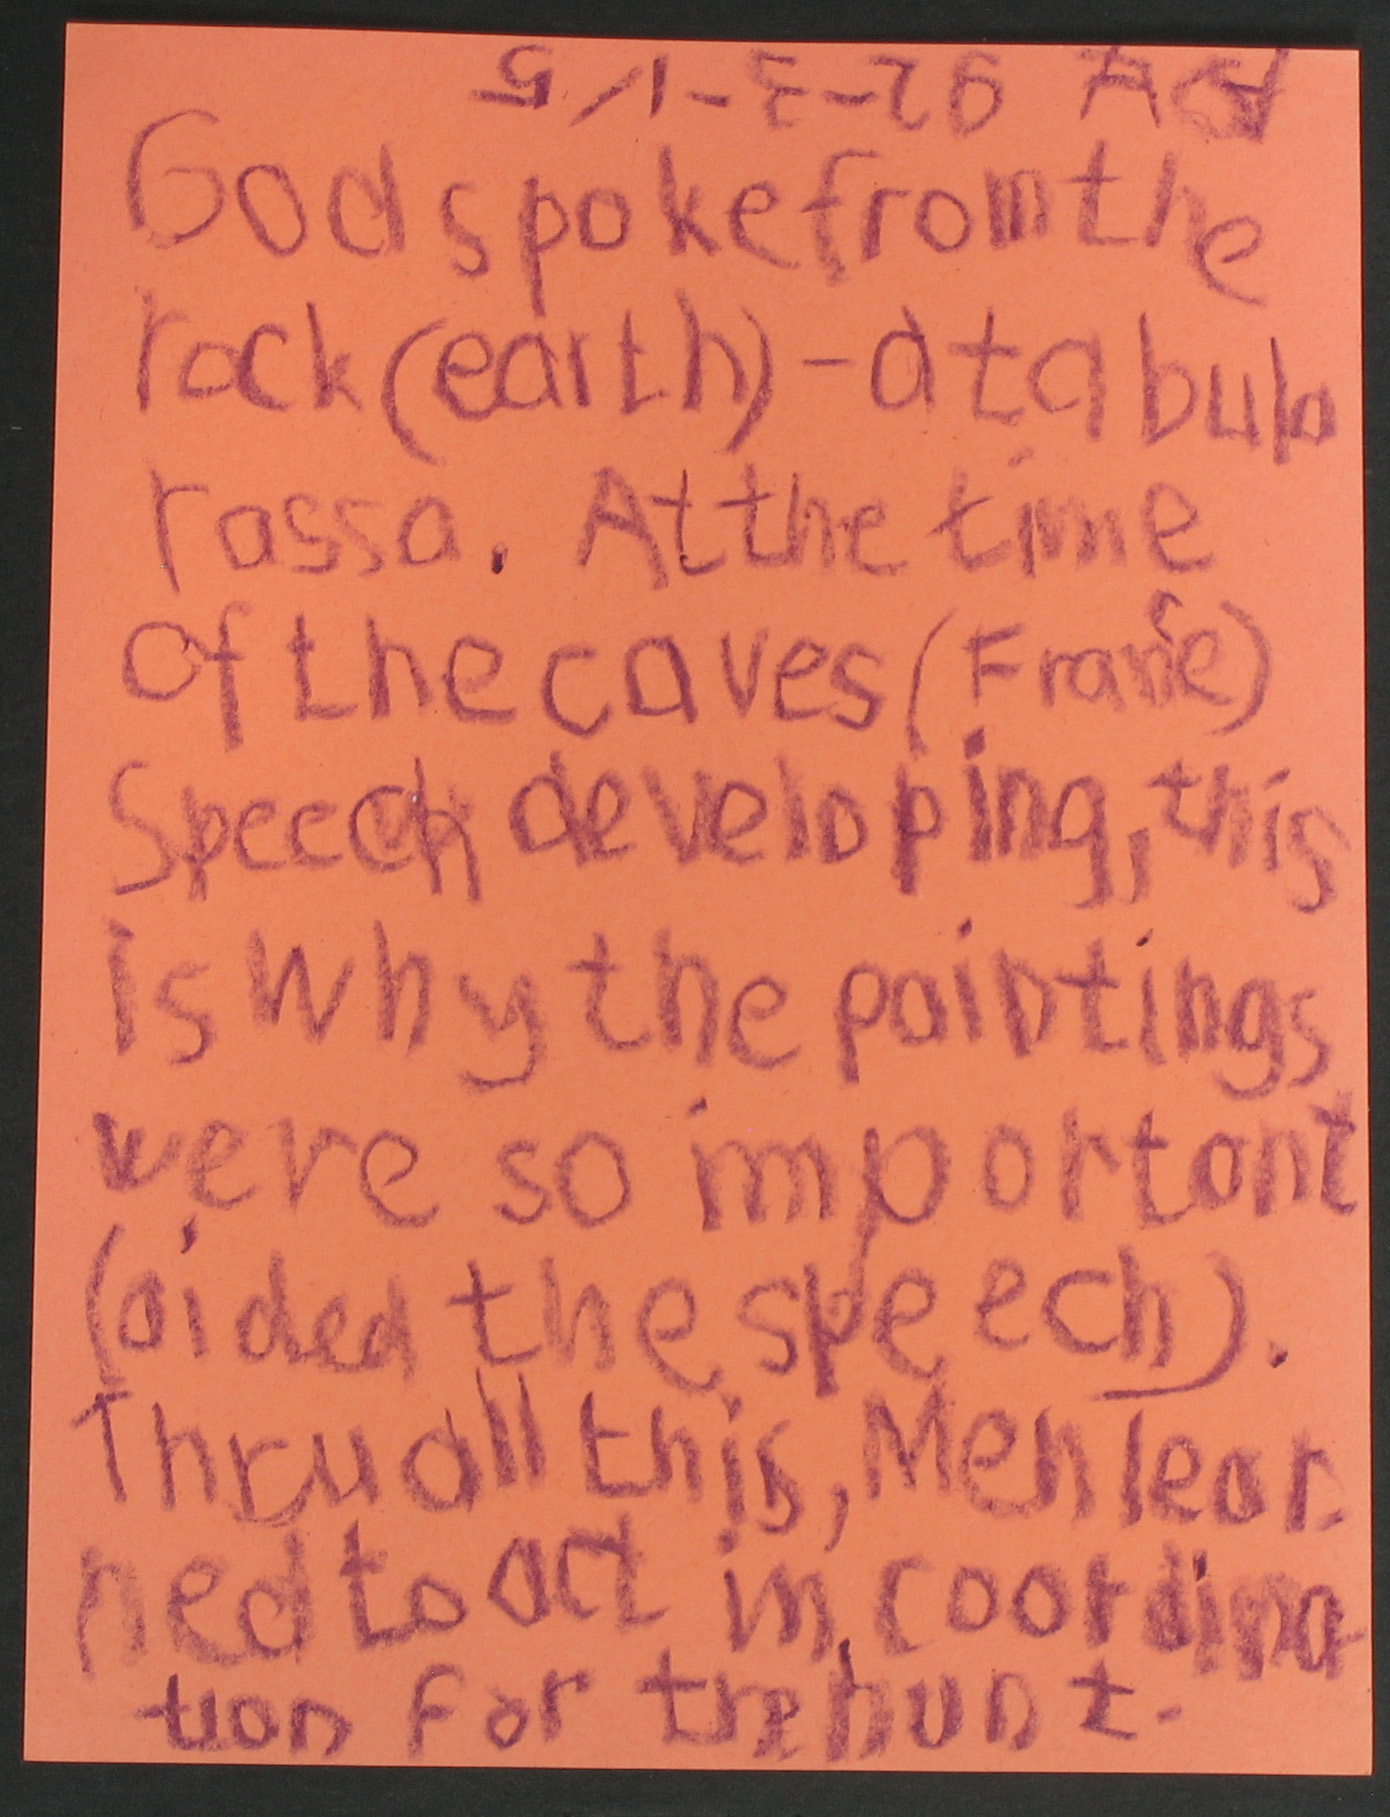 God spoke from the
rock (earth) - a tabula
rassa. At the time
of the caves (France)
Speech developing, this
is why the paintings
were so important
(aided the speech).
Thru all this, Men lear-
ned to act in coordina-
tion for the hunt.